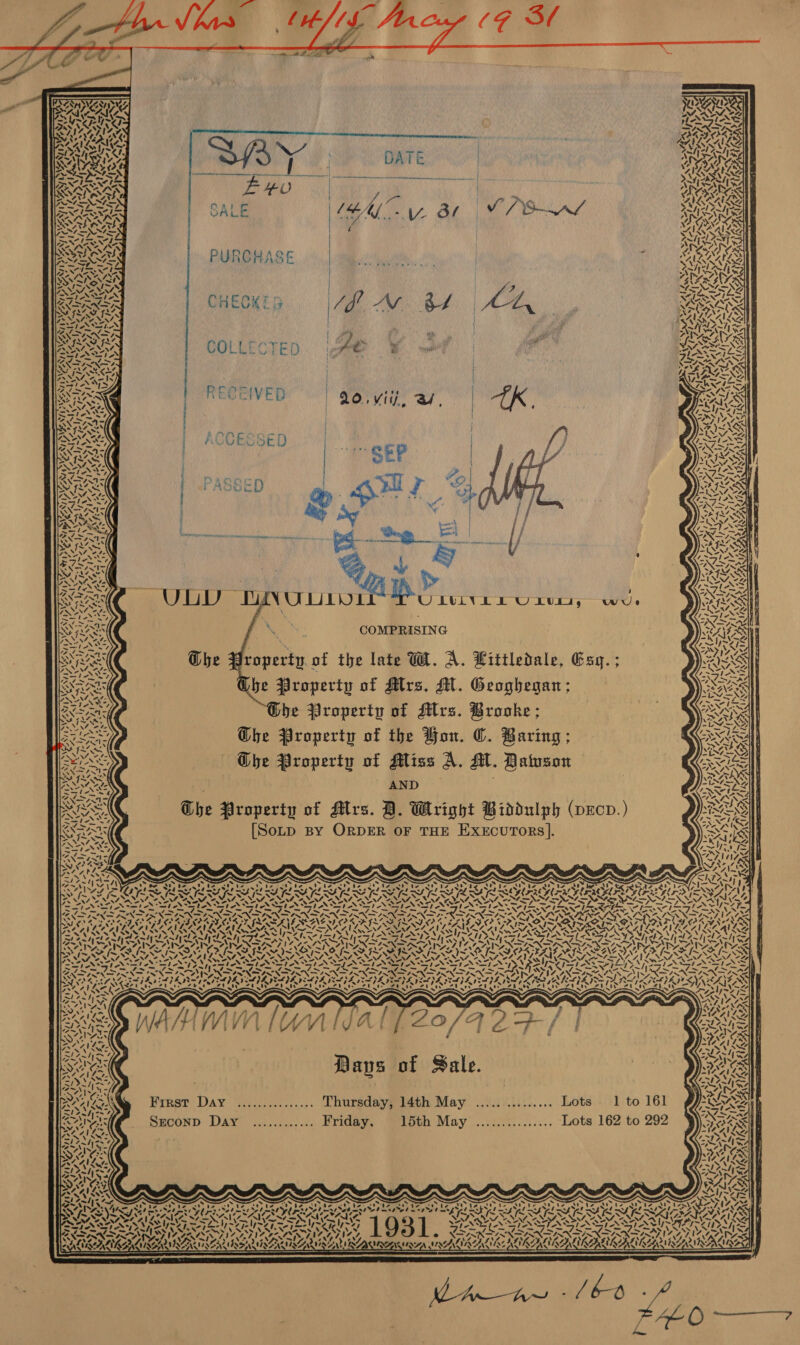 14/15 May 1931
SBY DATE
£40
SALE 14 V. 31
PURCHASE
CHECKED 18 V 31
COLLECTED
RECEIVED 20.viii.31.
ACCESSED SEP
PASSED
OLD ENGLISH FURNITURE, &c.
COMPRISING
The Property of the late W. A. Littledale, Esq.;
The Property of Mrs. M. Geoghegan;
The Property of Mrs. Brooke;
The Property of the Hon. C. Baring;
The Property of Miss A. M. Dawson
AND
The Property of Mrs. D. Wright Biddulph (DECD.)
[SOLD BY ORDER OF THE EXECUTORS].
Days of Sale.
FIRST DAY ............... Thursday, 14th May ............... Lots 1 to 161
SECOND DAY ............ Friday, 15th May ............... Lots 162 to 292
1931.
£40